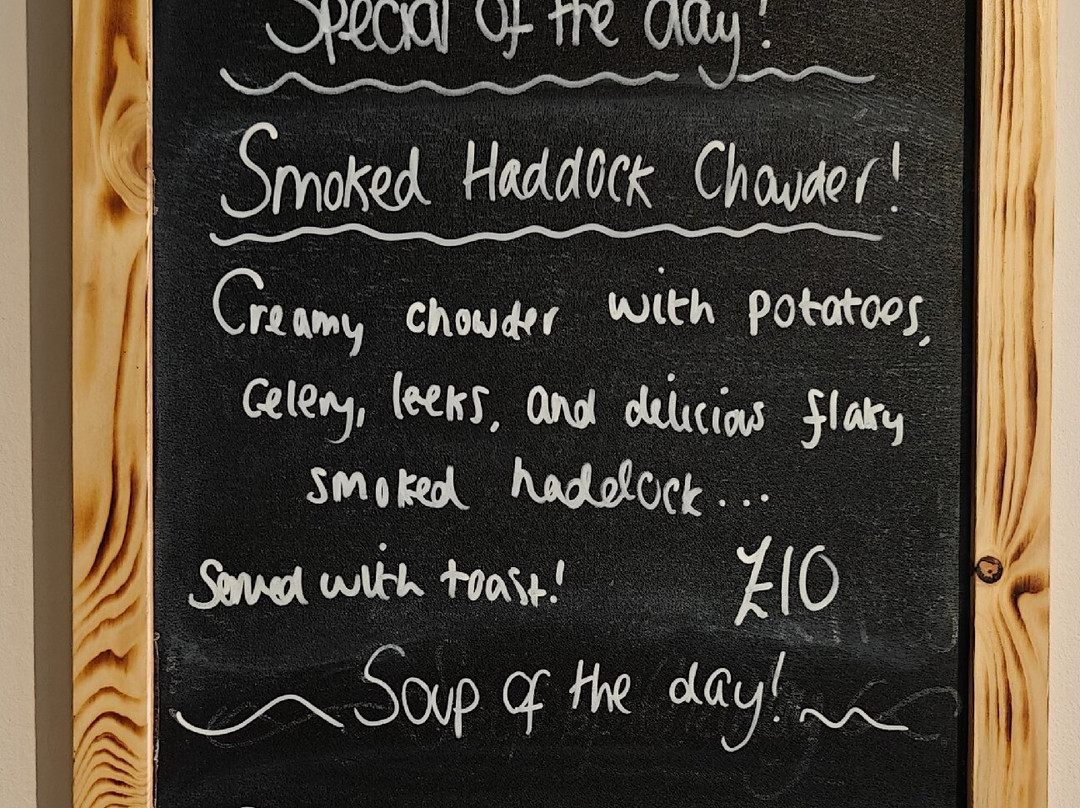 Special of the day!
Smoked Haddock Chowder!
Creamy chowder with potatoes,
Celery, leeks, and delicious flaky
smoked haddock...
Served with toast! £10
Soup of the day!